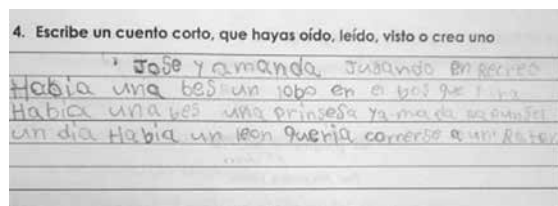 4. Escribe un cuento corto, que hayas oído, leído, visto o crea uno
Jose y amanda Jugando en recreo
Había una bes un lobo en el bosque
Había una bes una prinsesa yamada rapunsel
un dia Había un leon queria comerse a un Raton